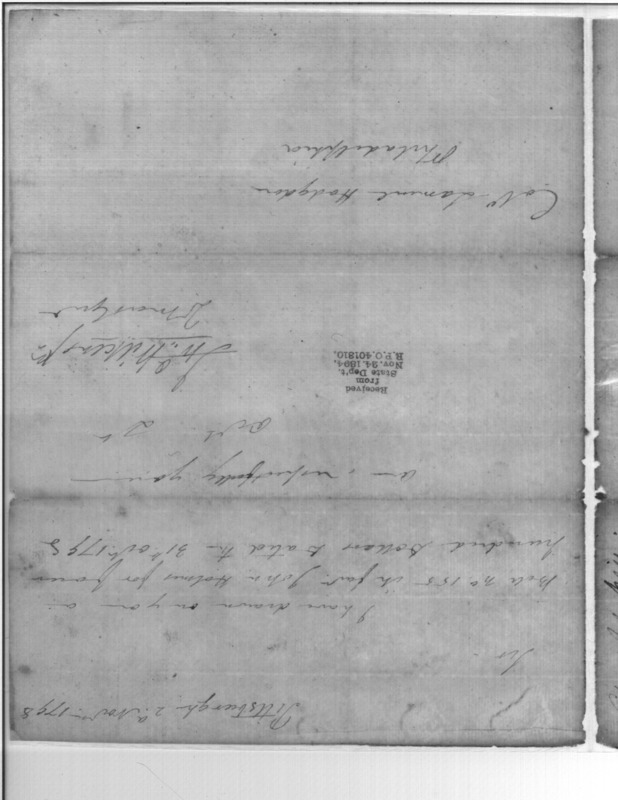 Pittsburgh 2d Novr 1798
Sir
I have drawn on you a
Bill No 155 in favr John Holmes for
hundred Dollars Dated the 31st Octr 1798
am, respectfully your
Obt St
Jn Wilkins Jr
Received
from
State Dep't.
Nov. 24. 1894.
R.P.O. 401810.
Coll Samuel Hodgdon
Philadelphia